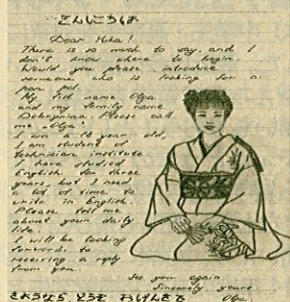 こんにちは
Dear Yuka!
There is so much to say, and I
don't know where to begin.
Would you please introduce
someone who is looking for a
pen pal.
My first name Olga
and my family name
Dobrynina. Please call
me „Olga".
I am a 18 year old,
I am student of
technician institute.
I have studied
English for three
years, but I need
a lot of time to
write in English.
Please tell me
about your daily
life.
I will be looking
forwards to
receiving a reply
from you.
See you again
Sincerely yours
Olga.
さようなら どうぞ おげんきで